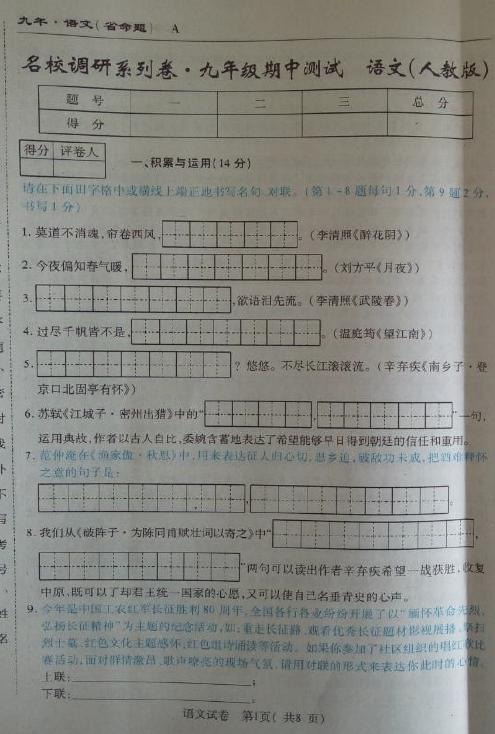 九年·语文(省命题) A
名校调研系列卷·九年级期中测试 语文(人教版)
题 号 一 二 三 总 分
得 分
得分 评卷人
一、积累与运用(14分)
请在下面田字格中或横线上端正地书写名句、对联。(第1-8题每句1分,第9题2分,
书写1分)
1. 莫道不消魂,帘卷西风, 。(李清照《醉花阴》)
2. 今夜偏知春气暖, 。(刘方平《月夜》)
3. ,欲语泪先流。(李清照《武陵春》)
4. 过尽千帆皆不是, 。(温庭筠《望江南》)
5. ?悠悠。不尽长江滚滚流。(辛弃疾《南乡子·登
京口北固亭有怀》)
6. 苏轼《江城子·密州出猎》中的“ , ”一句,
运用典故,作者以古人自比,委婉含蓄地表达了希望能够早日得到朝廷的信任和重用。
7. 范仲淹在《渔家傲·秋思》中,用来表达征人归心切,思乡迫,破敌功未成,把酒难释怀
之意的句子是:
, 。
8. 我们从《破阵子·为陈同甫赋壮词以寄之》中“ ,
”两句可以读出作者辛弃疾希望一战获胜,收复
中原,既可以了却君王统一国家的心愿,又可以使自己名垂青史的心声。
9. 今年是中国工农红军长征胜利80周年,全国各行各业纷纷开展了以“缅怀革命先烈,
弘扬长征精神”为主题的纪念活动,如:重走长征路、观看优秀长征题材影视展播、祭扫
烈士墓、红色文化主题感怀、红色组诗诵读等活动。如果你参加了社区组织的唱红歌比
赛活动,面对群情激昂、歌声嘹亮的现场气氛,请用对联的形式来表达你此时的心情。
上联: ;
下联: 。
语文试卷 第1页(共8页)